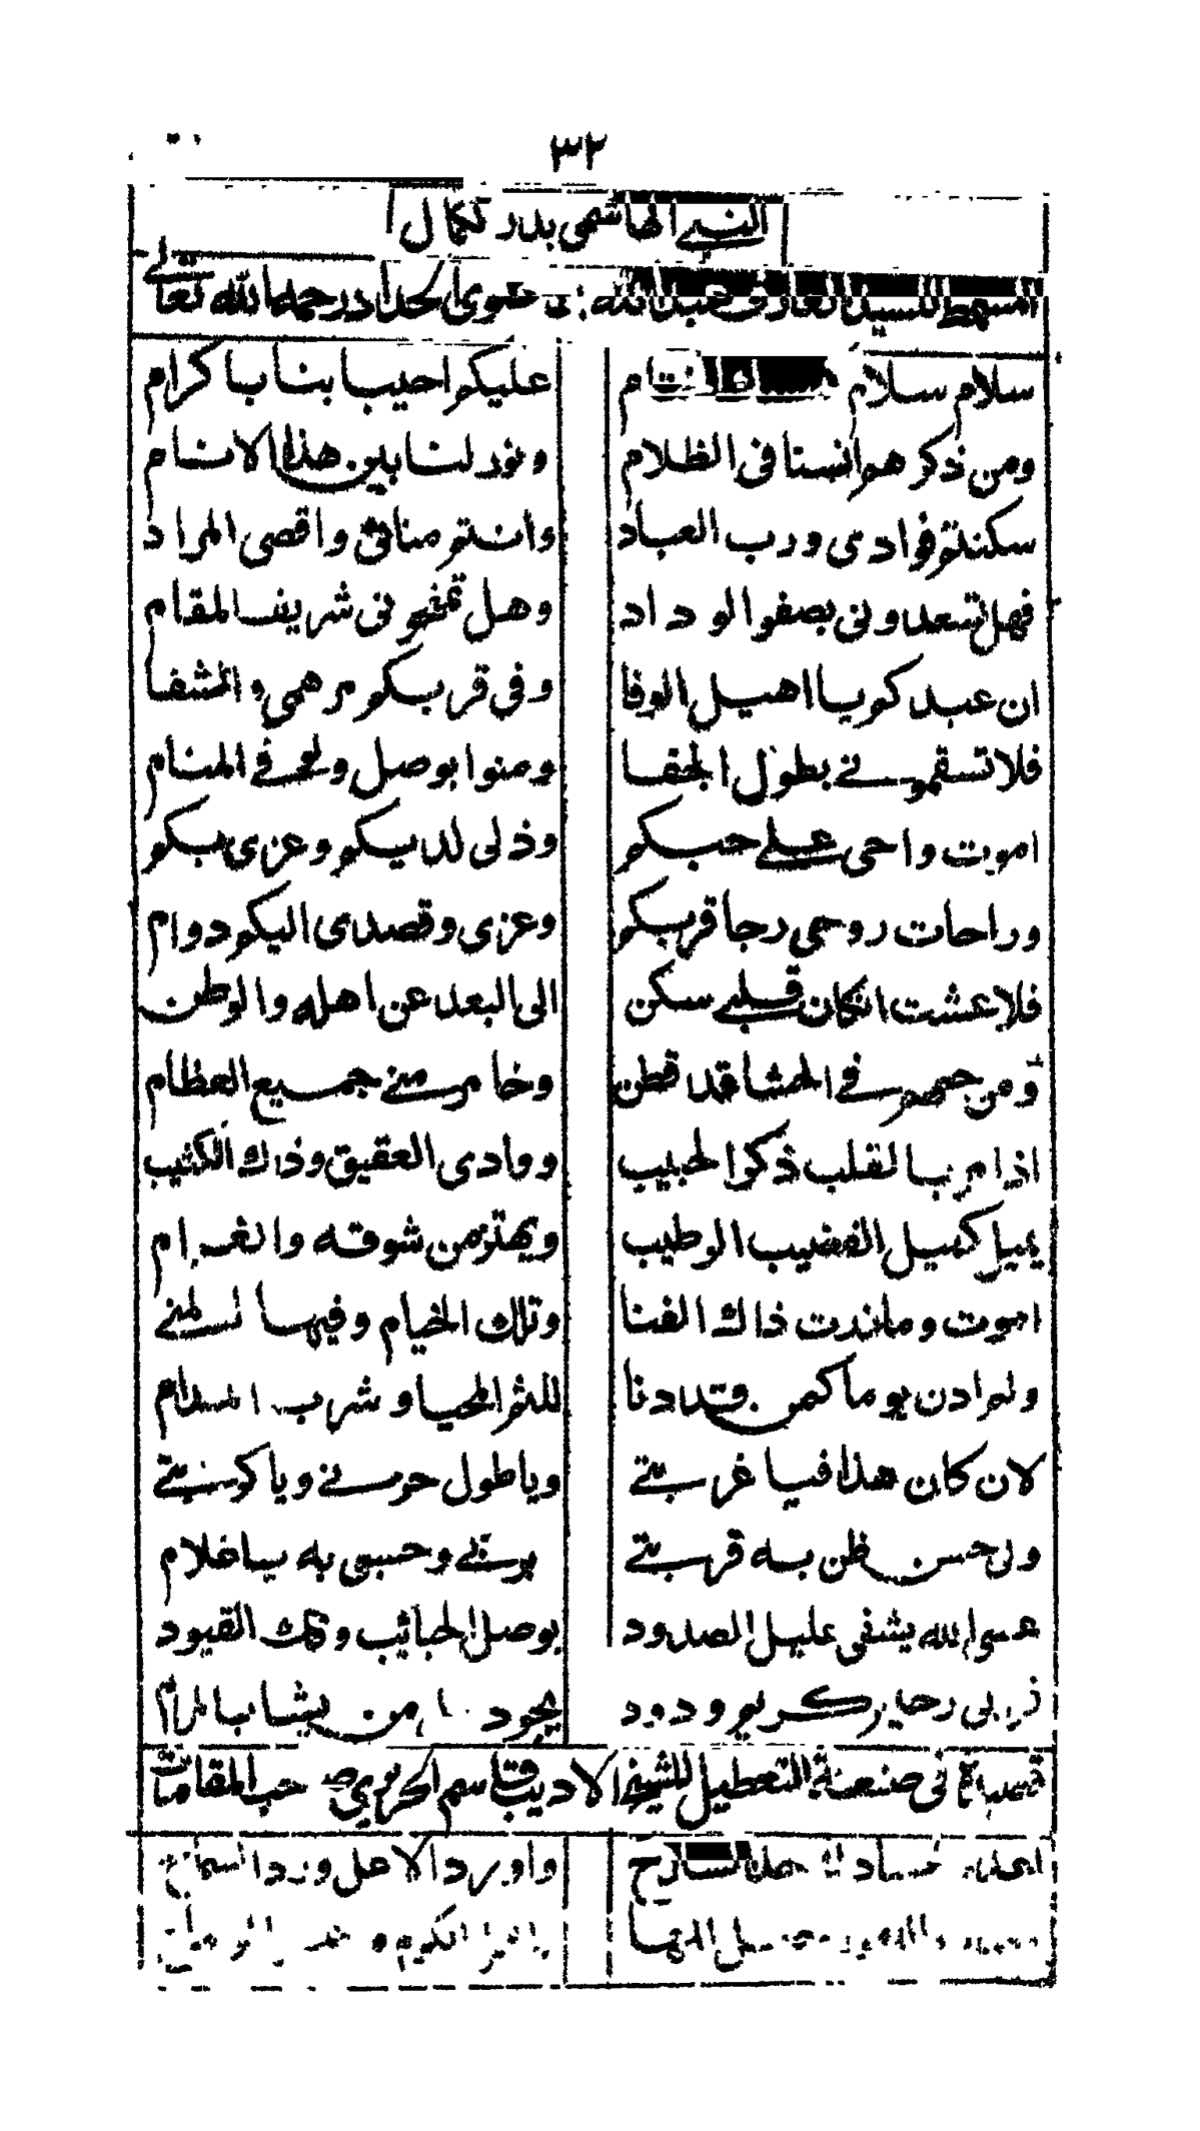 ٣٢
النبي الهاشمي بدر كمال
المسمط للسيد العارف عبدالله بن علوي الحداد رحمه الله تعالى
سلام سلام ختام عليكم احيبابنا ياكرام
ومن ذكرهم انسنا في الظلام ونور لنا بين هذا الانام
سكنتم فوادي ورب العباد وانتم منائي واقصى المراد
فهل تسعدوني بصفو الوداد وهل تمنحوني شريف المقام
ان عبدكم يا اهيل الوفا وفي قربكم مرهمي والشفا
فلا تسقموني بطول الجفا ومنوا بوصل ولو في المنام
اموت واحي على حبكم وذلي لديكم وعزي بكم
وراحات روحي رجا قربكم وعزي وقصدي اليكم دوام
فلاعشت ان كان قلبي سكن الى البعد عن اهله والوطن
ومن حبهم في الحشا قد قطن وخامر مني جميع العظام
اذا مر بالقلب ذكر الحبيب ووادي العقيق وذاك الكثيب
يميل كميل القضيب الرطيب ويهتز من شوقه والغرام
اموت وماندت ذاك الفنا وتلك الخيام وفيها المنى
ولم ادن يوما كمن قد دنا للثم المحيا وشرب المدام
لان كان هذا فيا غربتي ويا طول حزني ويا كربتي
ولي حسن ظن به قربتي بربي وحسبي به ياغلام
عسى الله يشفي عليل الصدود بوصل الحبائب وفك القيود
فربي رحيم كريم ودود يجود من يشا بالمرام
قصيدة في صنعة التعطيل للشيخ الاديب قاسم الحريري صاحب المقامات
حسادك حد السلاح واورد الامل ورد السماح